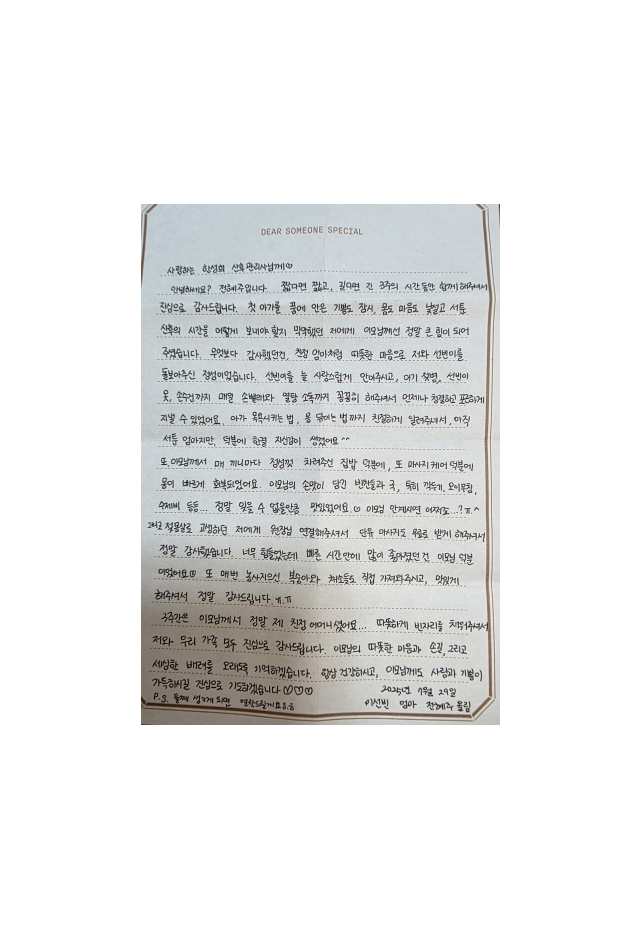 DEAR SOMEONE SPECIAL
사랑하는 한성희 산후관리사님께♡
안녕하세요? 전혜주입니다. 짧다면 짧고, 길다면 긴 3주의 시간동안 함께해주셔서
진심으로 감사드립니다. 첫 아가를 품에 안은 기쁨도 잠시, 몸도 마음도 낯설고 서툰
산후의 시간을 어떻게 보내야 할지 막막했던 저에게 이모님께선 정말 큰 힘이 되어
주셨습니다. 무엇보다 감사했던건, 친정 엄마처럼 따뜻한 마음으로 저와 선빈이를
돌보아주신 정성이었습니다. 선빈이를 늘 사랑스럽게 안아주시고, 아기 젖병, 선빈이
옷, 손수건까지 매일 손빨래와 열탕 소독까지 꼼꼼히 해주셔서 언제나 청결하고 포근하게
지낼 수 있었어요. 아가 목욕시키는 법, 몸 닦이는 법까지 친절하게 알려주셔서, 아직
서툰 엄마지만, 덕분에 한결 자신감이 생겼어요^^
또 이모님께서 매 끼니마다 정성껏 차려주신 집밥 덕분에, 또 마사지 케어 덕분에
몸이 빠르게 회복되었어요. 이모님의 손맛이 담긴 반찬들과 국, 특히 깍두기, 오이무침,
수제비 등등... 정말 잊을 수 없을만큼 맛있었어요.☺ 이모님 안계시면 어쩌죠...?ㅠ^
그리고 젖몸살로 고생하던 저에게 원장님 연결해주셔서 단유 마사지도 무료로 받게 해주셔서
정말 감사했습니다. 너무 힘들었는데 빠른 시간안에 많이 좋아졌던 건 이모님 덕분
이었어요☺ 또 매번 농사지으신 복숭아와 채소들도 직접 가져와주시고, 맛있게
해주셔서 정말 감사드립니다.ㅠ.ㅠ
3주간은 이모님께서 정말 제 친정 어머니셨어요... 따뜻하게 빈자리를 채워주셔서
저와 우리 가족 모두 진심으로 감사드립니다. 이모님의 따뜻한 마음과 손길, 그리고
세심한 배려를 오래도록 기억하겠습니다. 항상 건강하시고, 이모님께도 사랑과 기쁨이
가득하시길 진심으로 기도하겠습니다♡♡♡
2025년 7월 29일
P.S. 둘째 생기게 되면 연락드릴게요8.8
이선빈 엄마 전혜주 올림